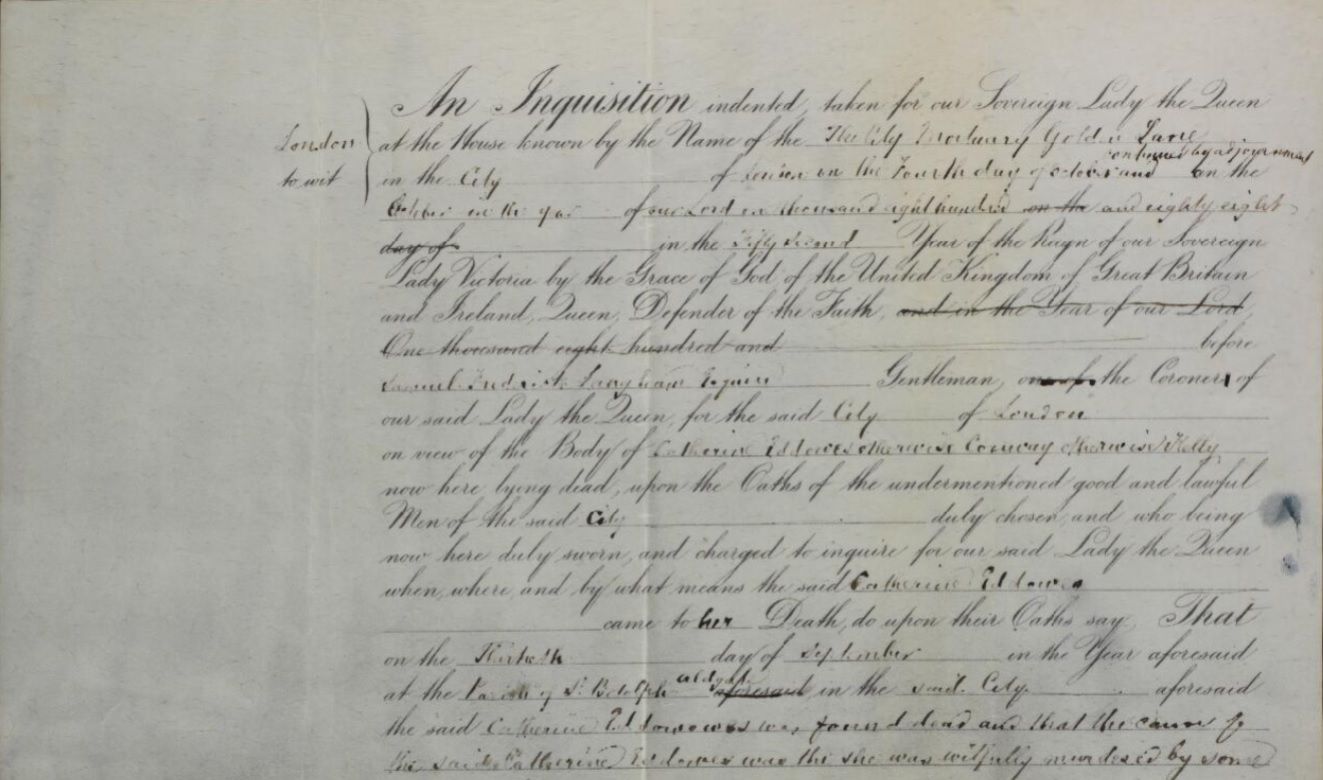 An Inquisition indented, taken for our Sovereign Lady the Queen
London at the House known by the Name of the The City Mortuary Golden Lane
continued by adjournment
to wit in the City of London on the Fourth day of October and on the
October in the year of our Lord on thousand eight hundred on the and eighty eight
day of in the Fifty second Year of the Reign of our Sovereign
Lady Victoria by the Grace of God of the United Kingdom of Great Britain
and Ireland, Queen, Defender of the Faith, and in the Year of our Lord,
One thousand eight hundred and before
Samuel Frederick Langham Esquire Gentleman, one of the Coroners of
our said Lady the Queen, for the said City of London
on view of the Body of Catherine Eddowes otherwise Conway otherwise Kelly
now here lying dead, upon the Oaths of the undermentioned good and lawful
Men of the said City duly chosen, and who being
now here duly sworn, and charged to inquire for our said Lady the Queen
when, where, and by what means the said Catherine Eddowes
came to her Death, do upon their Oaths say, That
on the Thirtieth day of September in the Year aforesaid
aldgate
at the Parish of St. Botolph aforesaid in the said City aforesaid
the said Catherine Eddowowes was found dead and that the cause of
the said Catherine Eddowes was the she was wilfully murdered by some